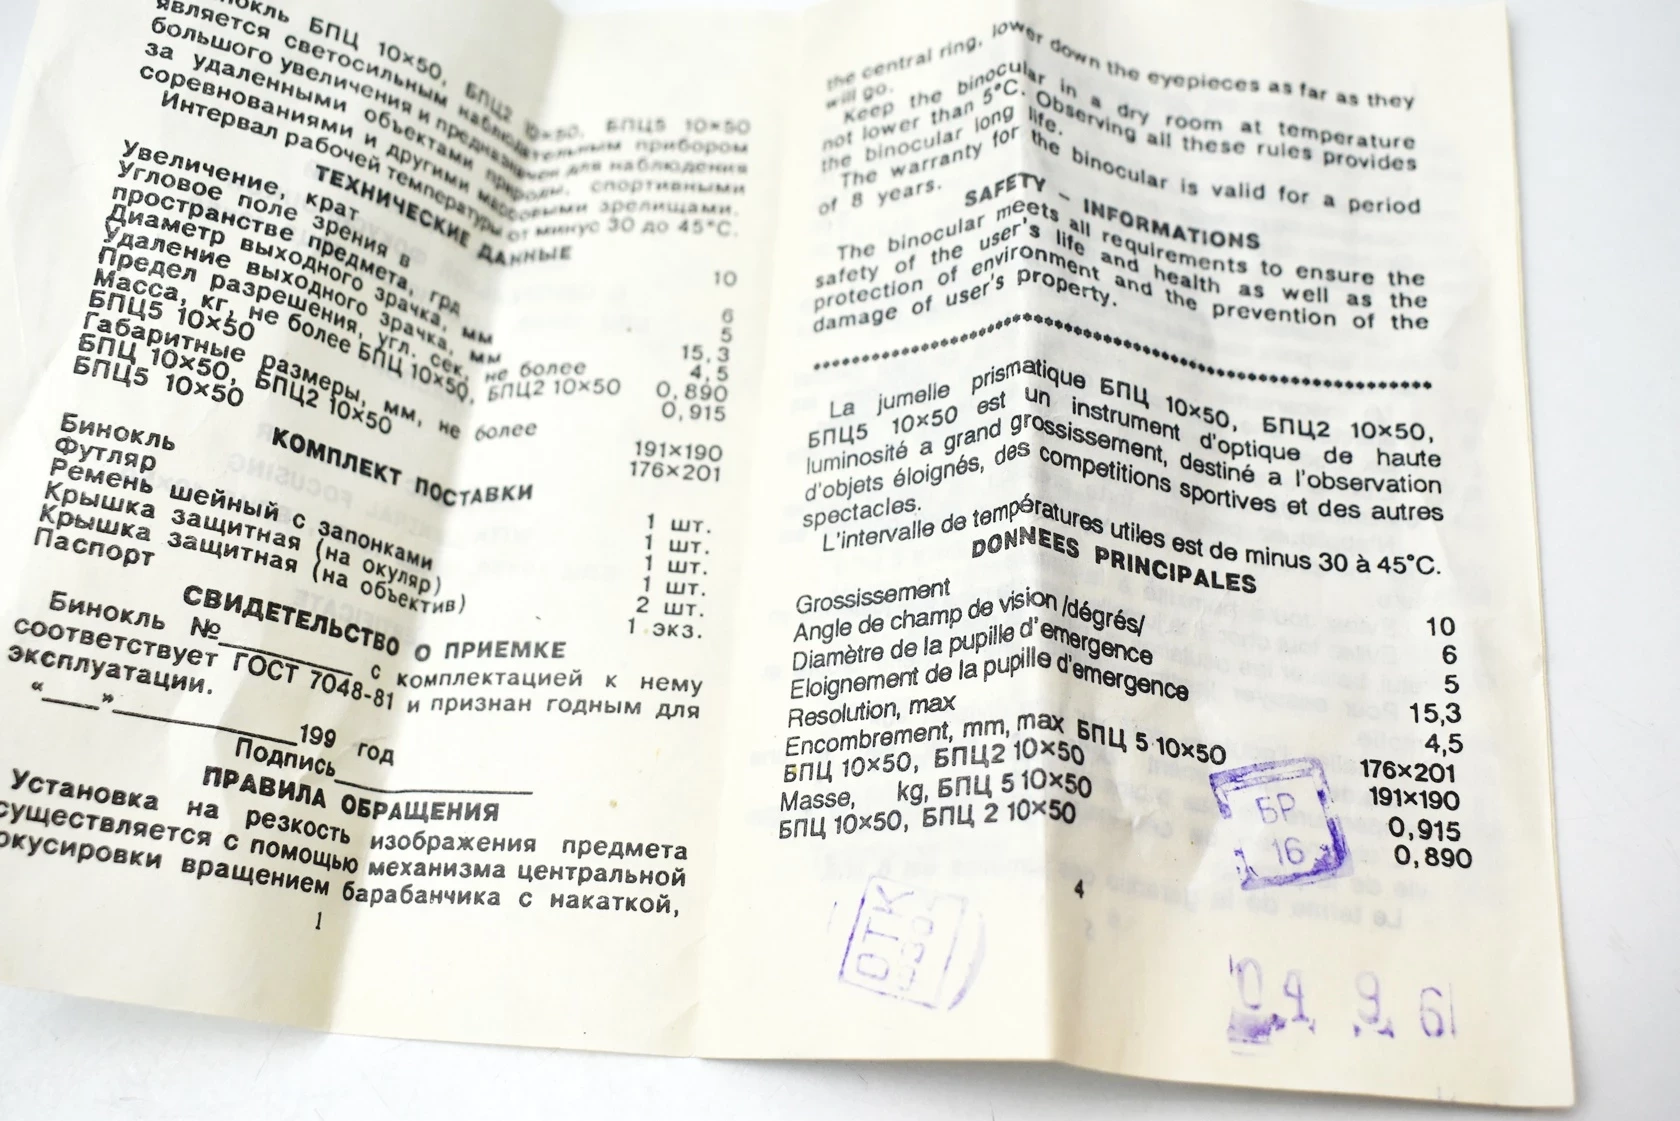 БПЦ 10×50, БПЦ2 10×50, БПЦ5 10×50
является светосильным наблюдательным прибором
большого увеличения и предназначен для наблюдения
за удаленными объектами природы, спортивными
соревнованиями и другими массовыми зрелищами.
Интервал рабочей температуры от минус 30 до 45°С.
ТЕХНИЧЕСКИЕ ДАННЫЕ
Увеличение, крат 10
Угловое поле зрения в
пространстве предмета, град 6
Диаметр выходного зрачка, мм 5
Удаление выходного зрачка, мм 15,3
Предел разрешения, угл. сек, не более 4,5
Масса, кг, не более БПЦ 10×50, БПЦ2 10×50 0,890
БПЦ5 10×50 0,915
Габаритные размеры, мм, не более
БПЦ 10×50, БПЦ2 10×50 191×190
БПЦ5 10×50 176×201
КОМПЛЕКТ ПОСТАВКИ
Бинокль 1 шт.
Футляр 1 шт.
Ремень шейный с запонками 1 шт.
Крышка защитная (на окуляр) 1 шт.
Крышка защитная (на объектив) 2 шт.
Паспорт 1 экз.
СВИДЕТЕЛЬСТВО О ПРИЕМКЕ
Бинокль №__________ с комплектацией к нему
соответствует ГОСТ 7048-81 и признан годным для
эксплуатации.
“____”______________199 год
Подпись______________
ПРАВИЛА ОБРАЩЕНИЯ
Установка на резкость изображения предмета
осуществляется с помощью механизма центральной
фокусировки вращением барабанчика с накаткой,
1
the central ring, lower down the eyepieces as far as they
will go.
Keep the binocular in a dry room at temperature
not lower than 5°C. Observing all these rules provides
the binocular long life.
The warranty for the binocular is valid for a period
of 8 years.
SAFETY - INFORMATIONS
The binocular meets all requirements to ensure the
safety of the user's life and health as well as the
protection of environment and the prevention of the
damage of user's property.
La jumelle prismatique БПЦ 10×50, БПЦ2 10×50,
БПЦ5 10×50 est un instrument d'optique de haute
luminosité a grand grossissement, destiné a l'observation
d'objets éloignés, des competitions sportives et des autres
spectacles.
L'intervalle de températures utiles est de minus 30 à 45°C.
DONNEES PRINCIPALES
Grossissement 10
Angle de champ de vision /dégrés/ 6
Diamètre de la pupille d'emergence 5
Eloignement de la pupille d'emergence 15,3
Resolution, max 4,5
Encombrement, mm, max БПЦ 5 10×50 176×201
БПЦ 10×50, БПЦ2 10×50 191×190
Masse, kg, БПЦ 5 10×50 0,915
БПЦ 10×50, БПЦ 2 10×50 0,890
БР
16
4
ОТК
04 9 6